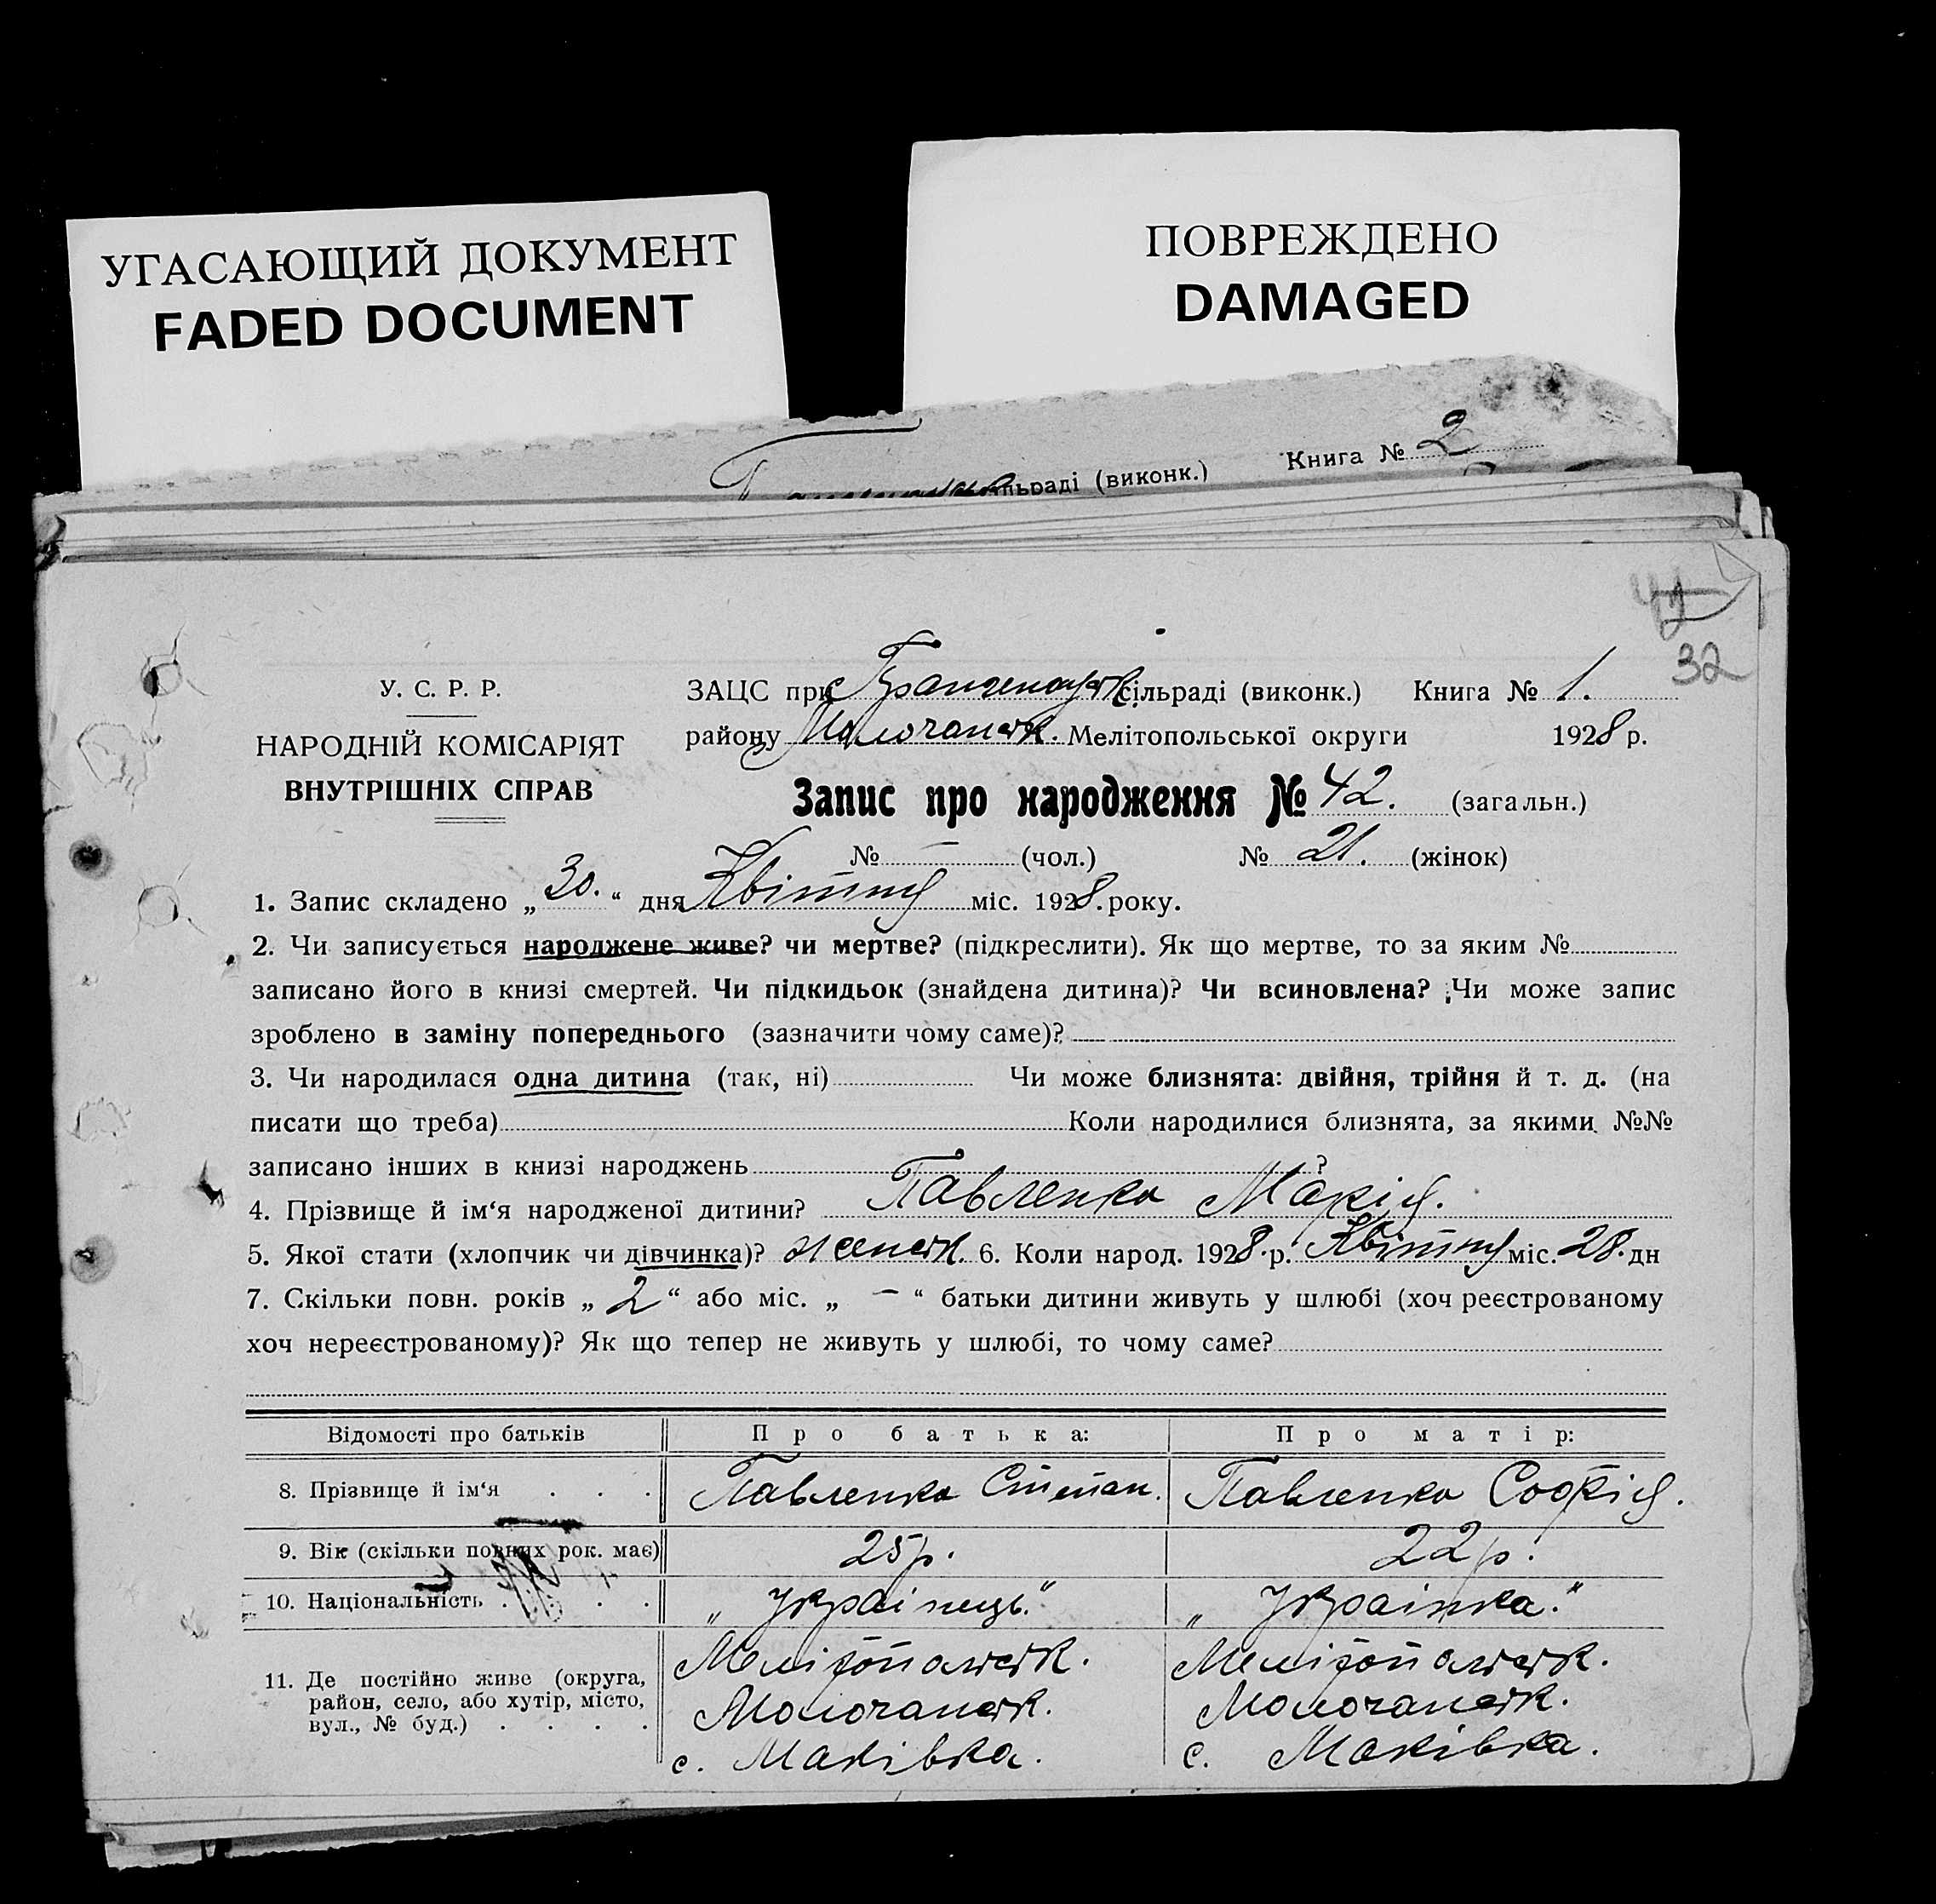 УГАСАЮЩИЙ ДОКУМЕНТ
FADED DOCUMENT
ПОВРЕЖДЕНО
DAMAGED
сільраді (виконк.) Книга № 2
42
32
У. С. Р. Р.
НАРОДНІЙ КОМІСАРІЯТ
ВНУТРІШНІХ СПРАВ
ЗАЦС при сільраді (виконк.) Книга № 1.
району Молочанськ. Мелітопольської округи 1928 р.
Запис про народження № 42. (загальн.)
№ — (чол.) № 21. (жінок)
1. Запис складено „ 30. “ дня Квітня міс. 1928. року.
2. Чи записується народжене живе? чи мертве? (підкреслити). Як що мертве, то за яким №
записано його в книзі смертей. Чи підкидьок (знайдена дитина)? Чи всиновлена? Чи може запис
зроблено в заміну попереднього (зазначити чому саме)?
3. Чи народилася одна дитина (так, ні) Чи може близнята: двійня, трійня й т. д. (на
писати що треба) Коли народилися близнята, за якими №№
записано інших в книзі народжень ?
4. Прізвище й ім‘я народженої дитини? Павленко Марія.
5. Якої стати (хлопчик чи дівчинка)? женськ. 6. Коли народ. 1928. р. Квітня міс. 28. дн
7. Скільки повн. років „ 2 “ або міс. „ — “ батьки дитини живуть у шлюбі (хоч реєстрованому
хоч нереєстрованому)? Як що тепер не живуть у шлюбі, то чому саме?
Відомості про батьків Про батька: Про матір:
8. Прізвище й ім‘я . . . Павленко Степан. Павленко Софія.
9. Вік (скільки повних рок. має) 25 р. 22 р.
10. Національність . . . „Українець.“ „Українка.“
11. Де постійно живе (округа, район, село, або хутір, місто, вул., № буд.) . . . .
Мелітопольськ. Мелітопольськ.
Молочанськ. Молочанськ.
с. Маківка. с. Маківка.